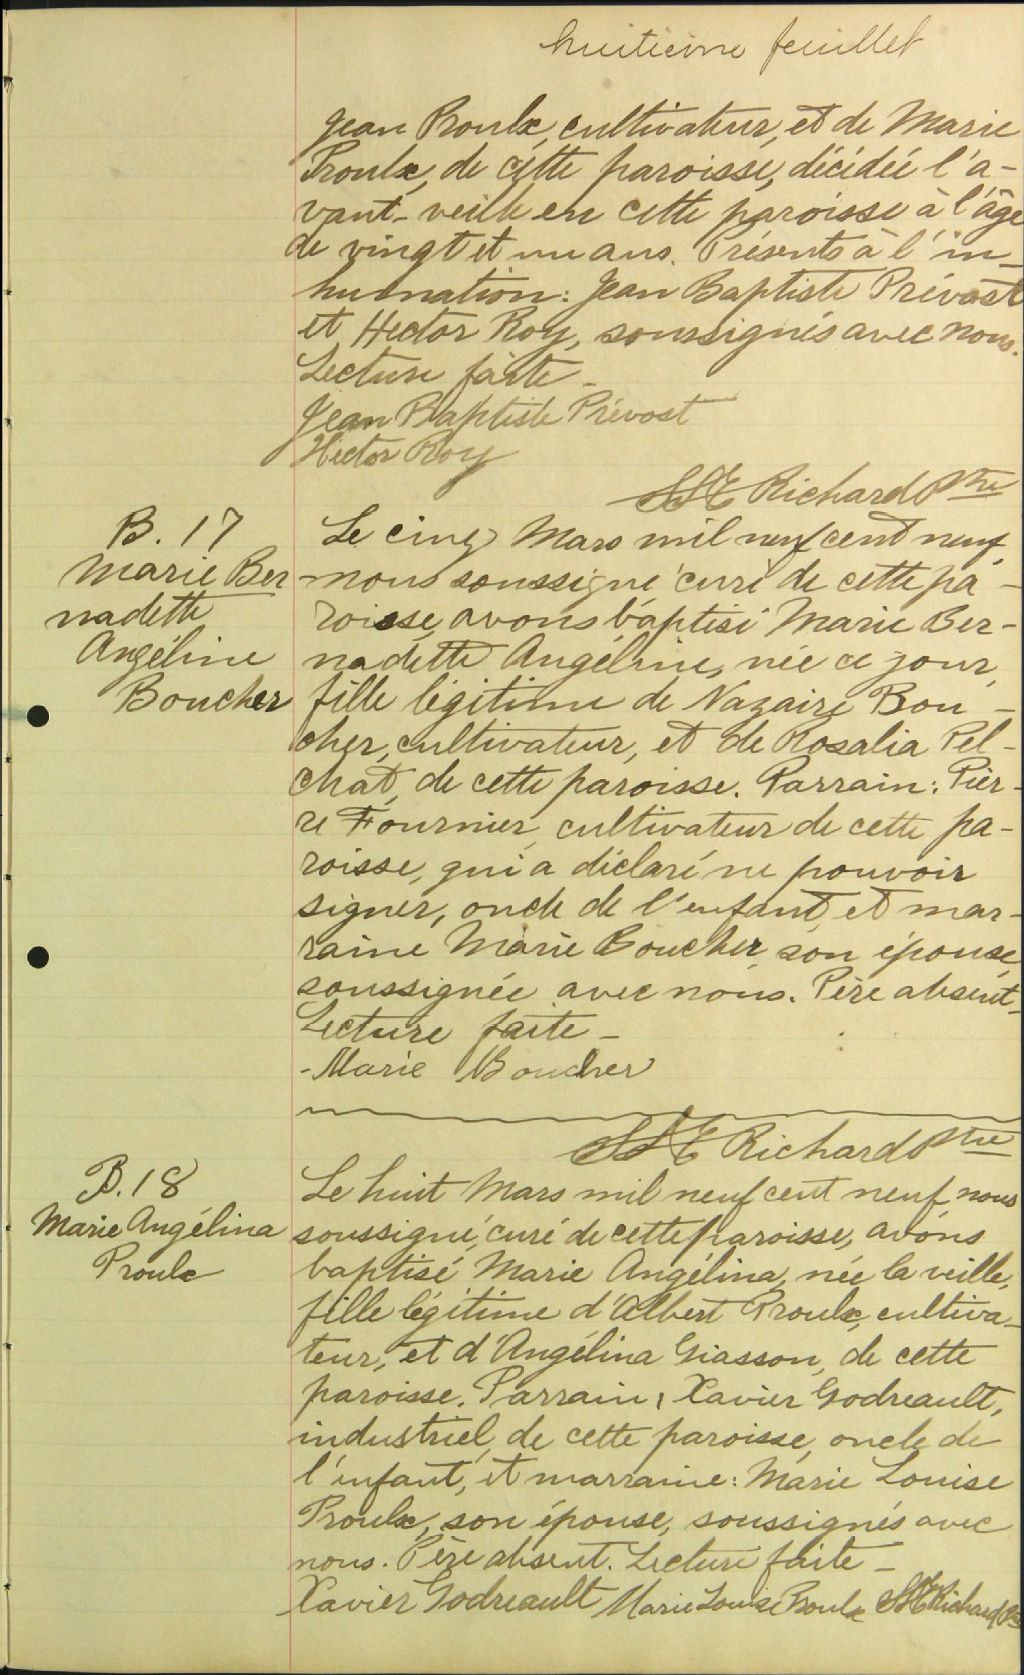 huitième feuillet
Jean Proulx, cultivateur, et de Marie
Proulx, de cette paroisse, décédée l'a-
vant-veille en cette paroisse à l'âge
de vingt et un ans. Présents à l'in-
humation: Jean Baptiste Prévost
et Hector Roy, soussignés avec nous.
Lecture faite -
Jean Baptiste Prévost
Hector Roy
Richard Ptre
B. 17
Marie Ber
nadette
Angéline
Boucher
Le cinq Mars mil neuf cent neuf
nous soussigné curé de cette pa-
roisse, avons baptisé Marie Ber-
nadette Angéline, née ce jour,
fille légitime de Nazaire Bou-
cher, cultivateur, et de Rosalia Pel-
chat, de cette paroisse. Parrain: Pier-
re Fournier, cultivateur de cette pa-
roisse, qui a déclaré ne pouvoir
signer, oncle de l'enfant, et mar-
raine Marie Boucher, son épouse,
soussignée avec nous. Père absent.
Lecture faite -
-Marie Boucher
Richard Ptre
B. 18
Marie Angélina
Proulx
Le huit Mars mil neuf cent neuf nous
soussigné, curé de cette paroisse, avons
baptisé Marie Angélina, née la veille,
fille légitime d'Albert Proulx, cultiva-
teur, et d'Angélina Giasson, de cette
paroisse. Parrain, Xavier Godreault,
industriel, de cette paroisse, oncle de
l'enfant, et marraine: Marie Louise
Proulx, son épouse, soussignés avec
nous. Père absent. Lecture faite -
Xavier Godreault Marie Louise Proulx Richard